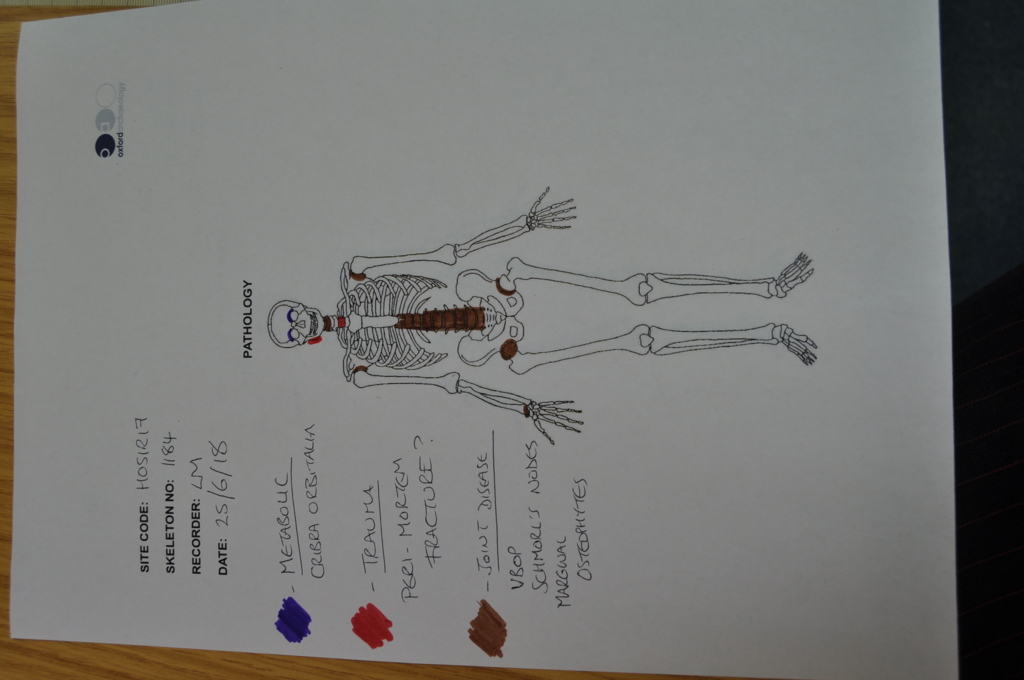 oxford archaeology
SITE CODE: HOSIR17
SKELETON NO: 1184
RECORDER: LM
DATE: 25/6/18
PATHOLOGY
- METABOLIC
CRIBRA ORBITALIA
- TRAUMA
PERI-MORTEM
FRACTURE?
- JOINT DISEASE
VBOP
SCHMORL'S NODES
MARGINAL
OSTEOPHYTES